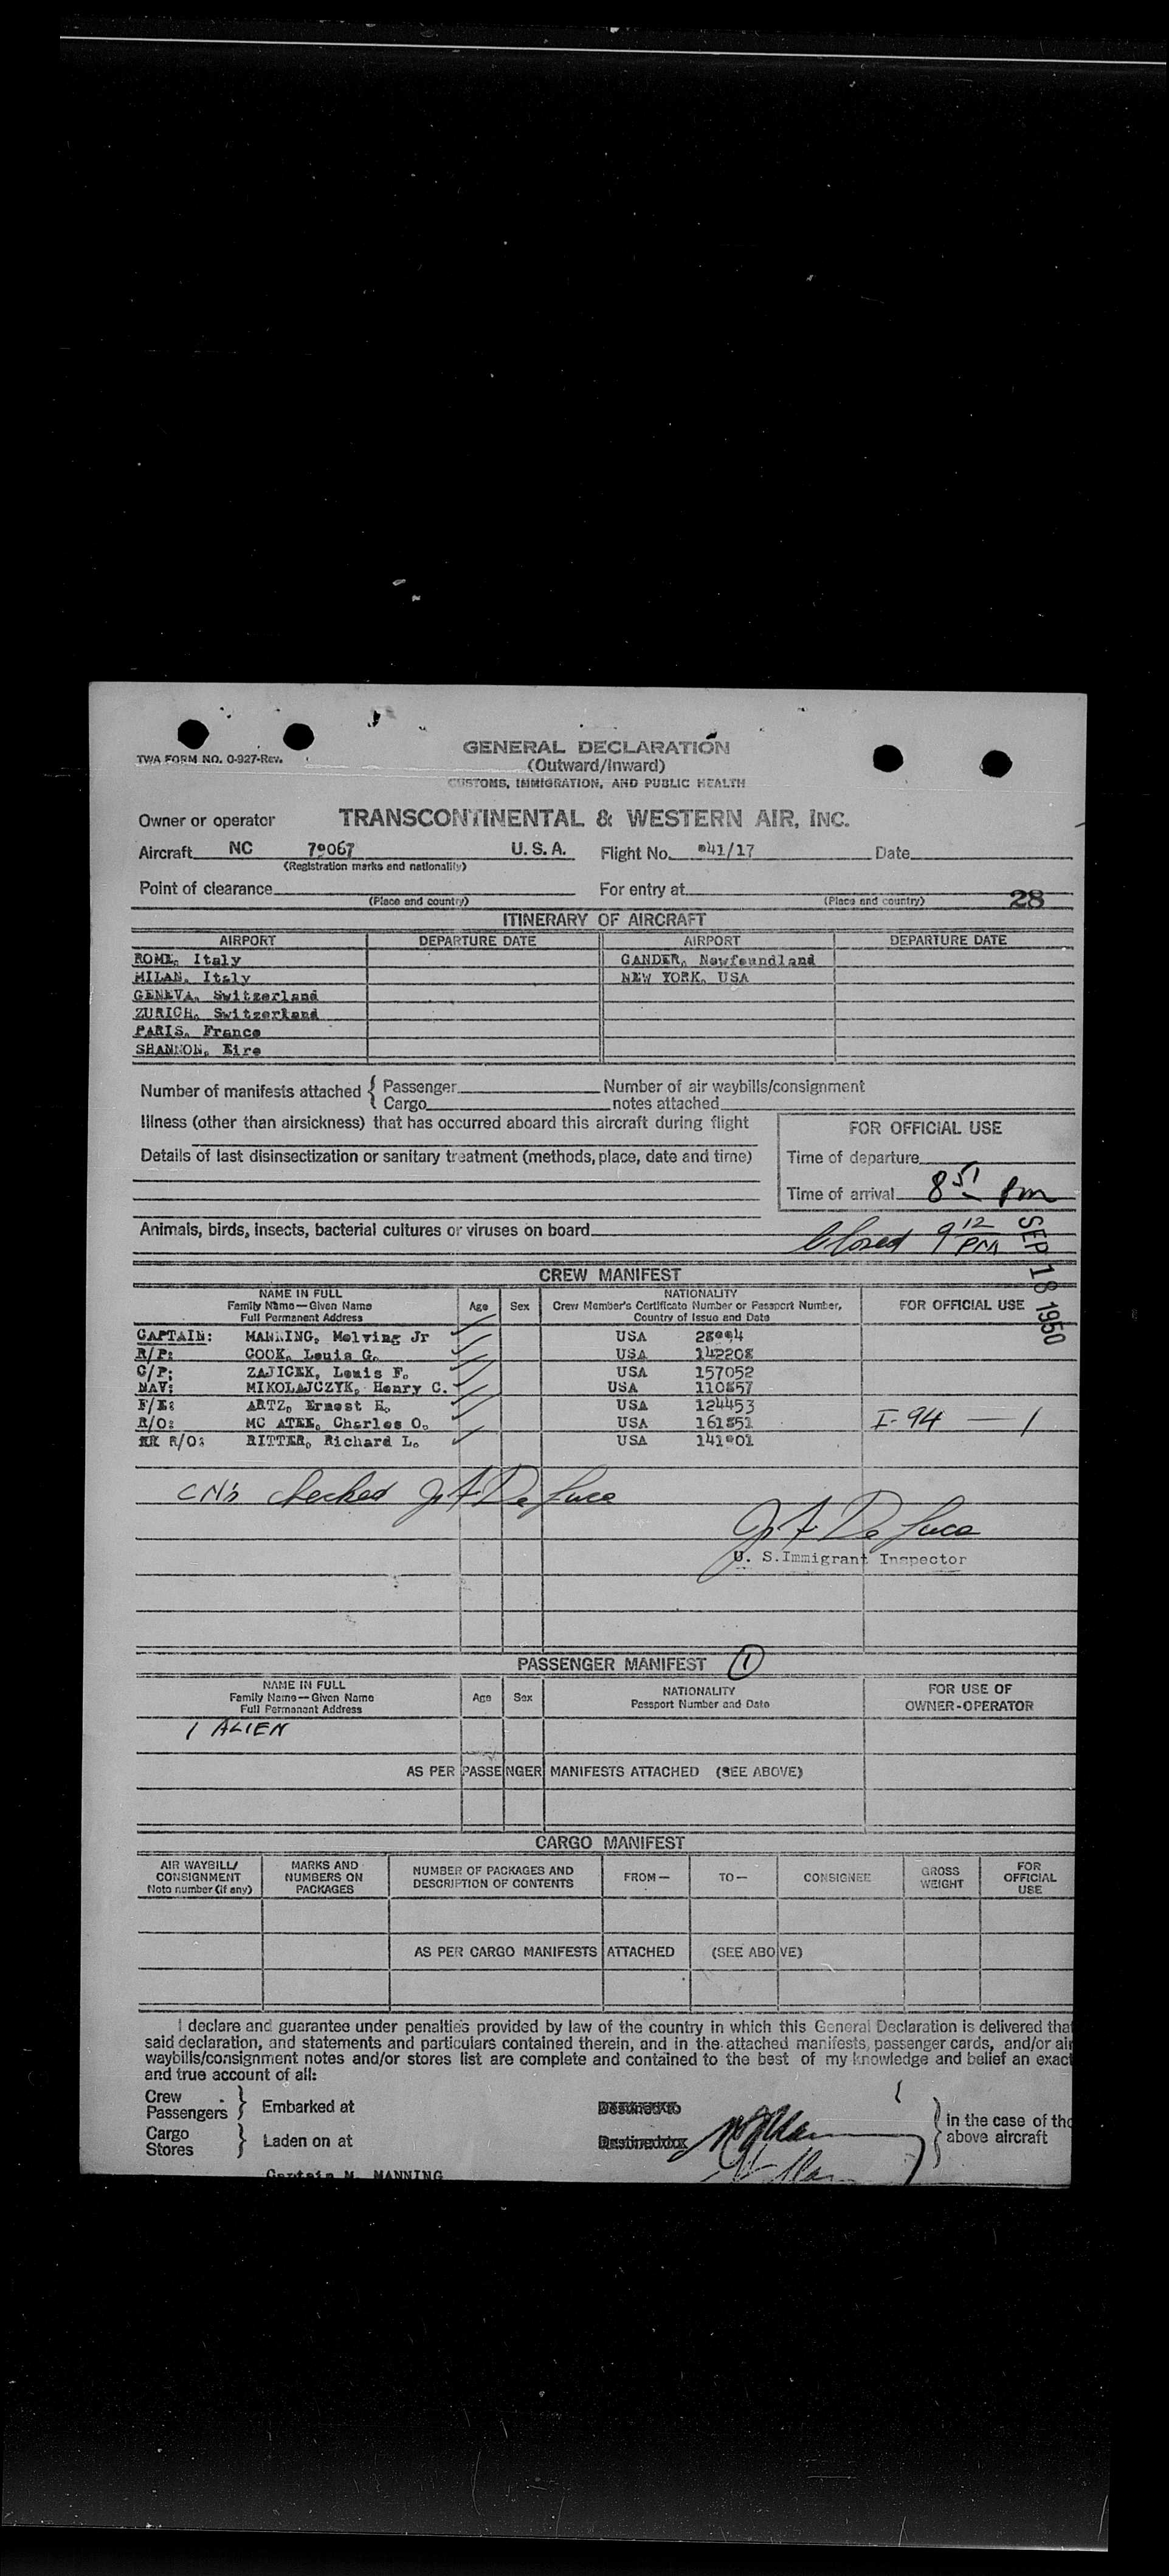 GENERAL DECLARATION
(Outward/Inward)
TWA FORM NO. 0-927-Rev.
CUSTOMS, IMMIGRATION, AND PUBLIC HEALTH
Owner or operator TRANSCONTINENTAL & WESTERN AIR, INC.
Aircraft NC 79067 U.S.A. Flight No. 941/17 Date
(Registration marks and nationality)
Point of clearance For entry at
(Place and country) (Place and country) 28
ITINERARY OF AIRCRAFT
AIRPORT DEPARTURE DATE AIRPORT DEPARTURE DATE
ROME, Italy GANDER, Newfoundland
MILAN, Italy NEW YORK, USA
GENEVA, Switzerland
ZURICH, Switzerland
PARIS, France
SHANNON, Eire
Number of manifests attached { Passenger Number of air waybills/consignment
Cargo notes attached
Illness (other than airsickness) that has occurred aboard this aircraft during flight
FOR OFFICIAL USE
Details of last disinsectization or sanitary treatment (methods, place, date and time)
Time of departure
Time of arrival 8 51 pm
Animals, birds, insects, bacterial cultures or viruses on board
Closed 9 12 PM
SEP 18 1950
CREW MANIFEST
NAME IN FULL
Family Name—Given Name
Full Permanent Address
Age Sex
NATIONALITY
Crew Member's Certificate Number or Passport Number,
Country of Issue and Date
FOR OFFICIAL USE
CAPTAIN: MANNING, Melving Jr USA
R/P: COOK, Louis G. USA 142208
C/P: ZAJICEK, Louis F. USA 157052
NAV: MIKOLAJCZYK, Henry C. USA 110857
F/E: ARTZ, Ernest E. USA 124453
R/O: MC ATEE, Charles O. USA 161851 I-94 — 1
R/O: RITTER, Richard L. USA 141901
CN's checked J F De Luca
J F De Luca
U. S. Immigrant Inspector
PASSENGER MANIFEST 1
NAME IN FULL
Family Name—Given Name
Full Permanent Address
Age Sex
NATIONALITY
Passport Number and Date
FOR USE OF
OWNER-OPERATOR
1 ALIEN
AS PER PASSENGER MANIFESTS ATTACHED (SEE ABOVE)
CARGO MANIFEST
AIR WAYBILL/
CONSIGNMENT
Note number (if any)
MARKS AND
NUMBERS ON
PACKAGES
NUMBER OF PACKAGES AND
DESCRIPTION OF CONTENTS
FROM— TO— CONSIGNEE
GROSS
WEIGHT
FOR
OFFICIAL
USE
AS PER CARGO MANIFESTS ATTACHED (SEE ABOVE)
I declare and guarantee under penalties provided by law of the country in which this General Declaration is delivered that
said declaration, and statements and particulars contained therein, and in the attached manifests, passenger cards, and/or air
waybills/consignment notes and/or stores list are complete and contained to the best of my knowledge and belief an exact
and true account of all:
Crew
Passengers } Embarked at
Cargo
Stores } Laden on at
in the case of the
above aircraft
Captain M. MANNING